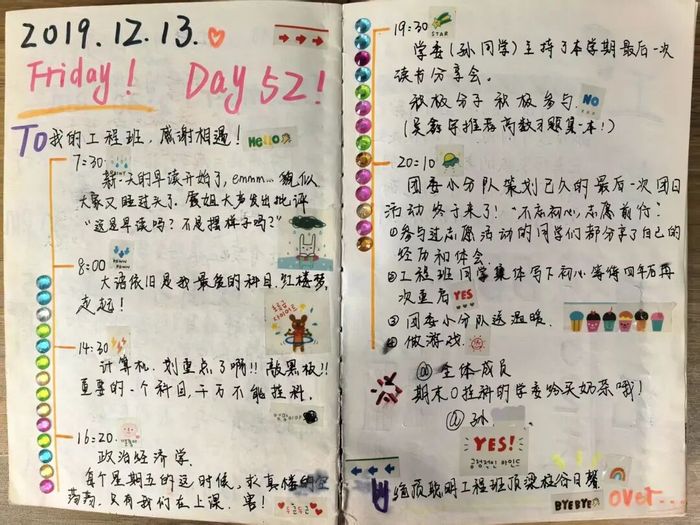 2019.12.13.
Friday! Day 52!
TO我的工程班，感谢相遇！ HeLLO
7:30
新一天的早读开始了，emmm...貌似
大家又睡过头了. 震姐大声发出批评
"这是早读吗？不是摆样子吗？"
8:00
大语依旧是我最爱的科目. 红楼梦,
走起！
14:30
计算机. 划重点了啊!! 敲黑板!!
重要的一个科目，千万不能挂科.
16:20.
政治经济学.
每个星期五的这时候，教真楼的空
荡荡，只有我们在上课. 害！
19:30
STAR
学委（孙同学）主持了本学期最后一次
读书分享会。
积极分子积极参与. NO
20:10
团委小分队策划已久的最后一次团日
活动终于来了！"不忘初心，志愿前行"
①参与过志愿活动的同学们都分享了自己的
经历和体会.
②工程班同学集体写下初心等待四年后再
次重启 YES
③团委小分队送温暖.
④做游戏.
@ 全体成员
期末0挂科的学委给买奶茶哦!
@ 孙.
YES!
긍정적인 마인드
BYEBYE over...